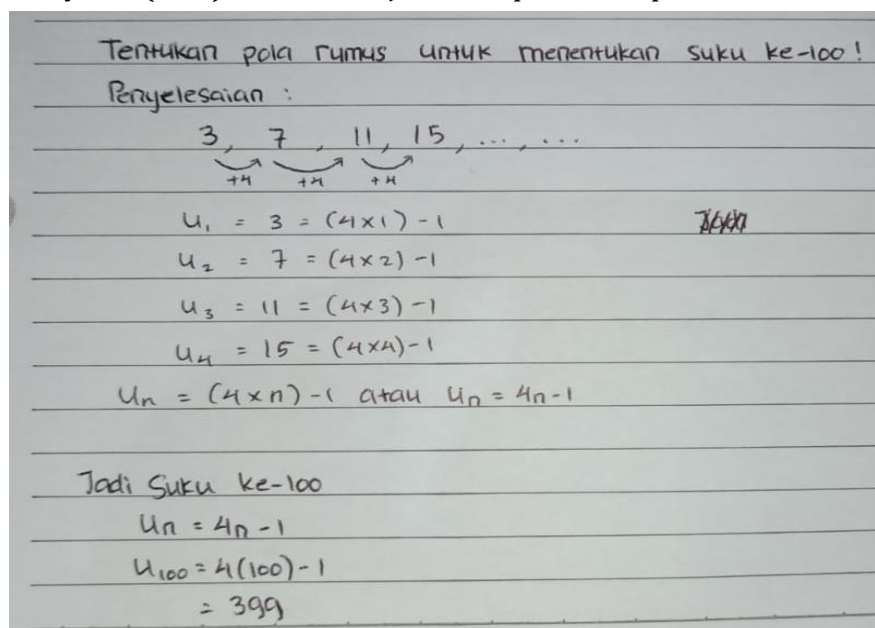 Tentukan pola rumus untuk menentukan suku ke-100!
Penyelesaian :
3, 7, 11, 15, ..., ...
+4 +4 +4
U₁ = 3 = (4×1) - 1
U₂ = 7 = (4×2) - 1
U₃ = 11 = (4×3) - 1
U₄ = 15 = (4×4) - 1
Un = (4×n) - 1 atau Un = 4n - 1
Jadi Suku ke-100
Un = 4n - 1
U₁₀₀ = 4(100) - 1
= 399